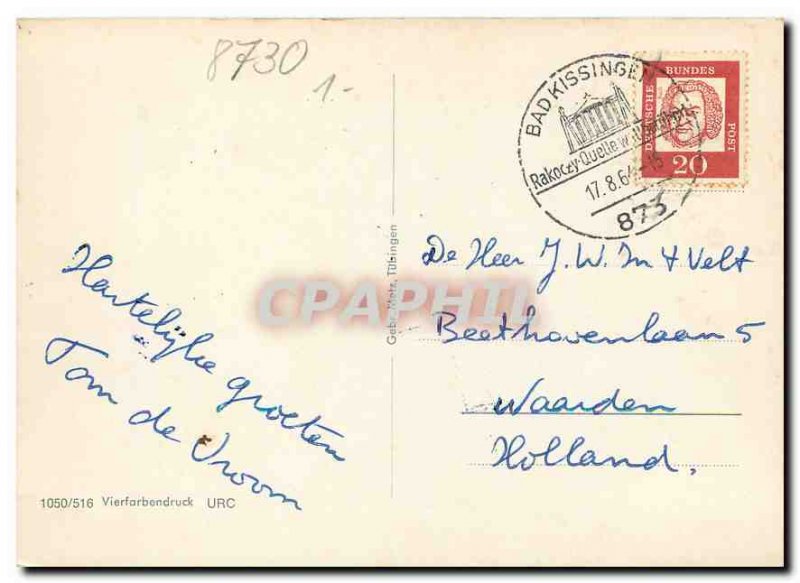 8730
1.-
BAD KISSINGEN
Rakoczy-Quelle
17.8.64
873
DEUTSCHE BUNDES POST
20
Hartelijke groeten
Tom de Vroom
De Heer J. W. In 't Velt
Beethovenlaan 5
Naarden
Holland.
Gebr. Metz, Tübingen
CPAPHIL
1050/516 Vierfarbendruck URC